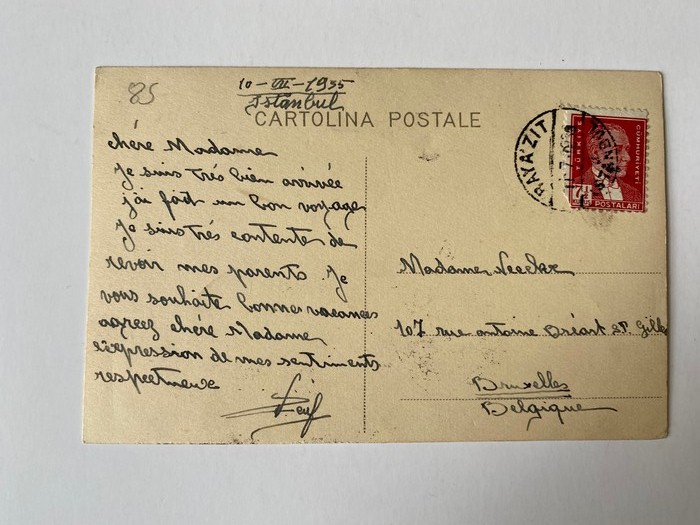 85
10-VII-1935
Istanbul
CARTOLINA POSTALE
chère Madame
Je suis très bien arrivée
j'ai fait un bon voyage
Je suis très contente de
revoir mes parents. Je
vous souhaite bonne vacances
agreez chère Madame
l'expression de mes sentiments
respectueux
TÜRKİYE
CUMHURİYETİ
POSTALARI
Madame
107 rue antoine Bréart St. Gilles
Bruxelles
Belgique